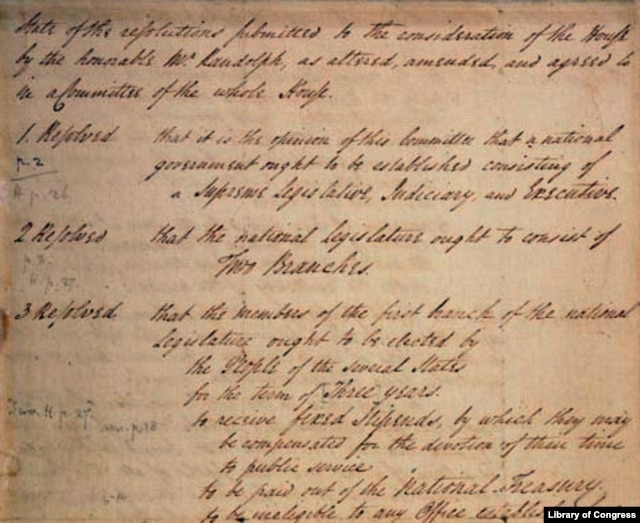 State of the resolutions submitted to the consideration of the House
by the honorable Mr. Randolph, as altered, amended, and agreed to
in a Committee of the whole House.
1. Resolved that it is the opinion of this Committee that a national
p. 2 government ought to be established consisting of
H p. 26 a Supreme Legislative, Judiciary, and Executive.
2 Resolved that the national Legislature ought to consist of
Two Branches.
H. p. 27.
3 Resolved that the members of the first branch of the national
Legislature ought to be elected by
the People of the several States
for the term of Three years.
H p. 27
to receive fixed Stipends, by which they may
be compensated for the devotion of their time
to public service
to be paid out of the National Treasury.
to be ineligible to any Office
Library of Congress